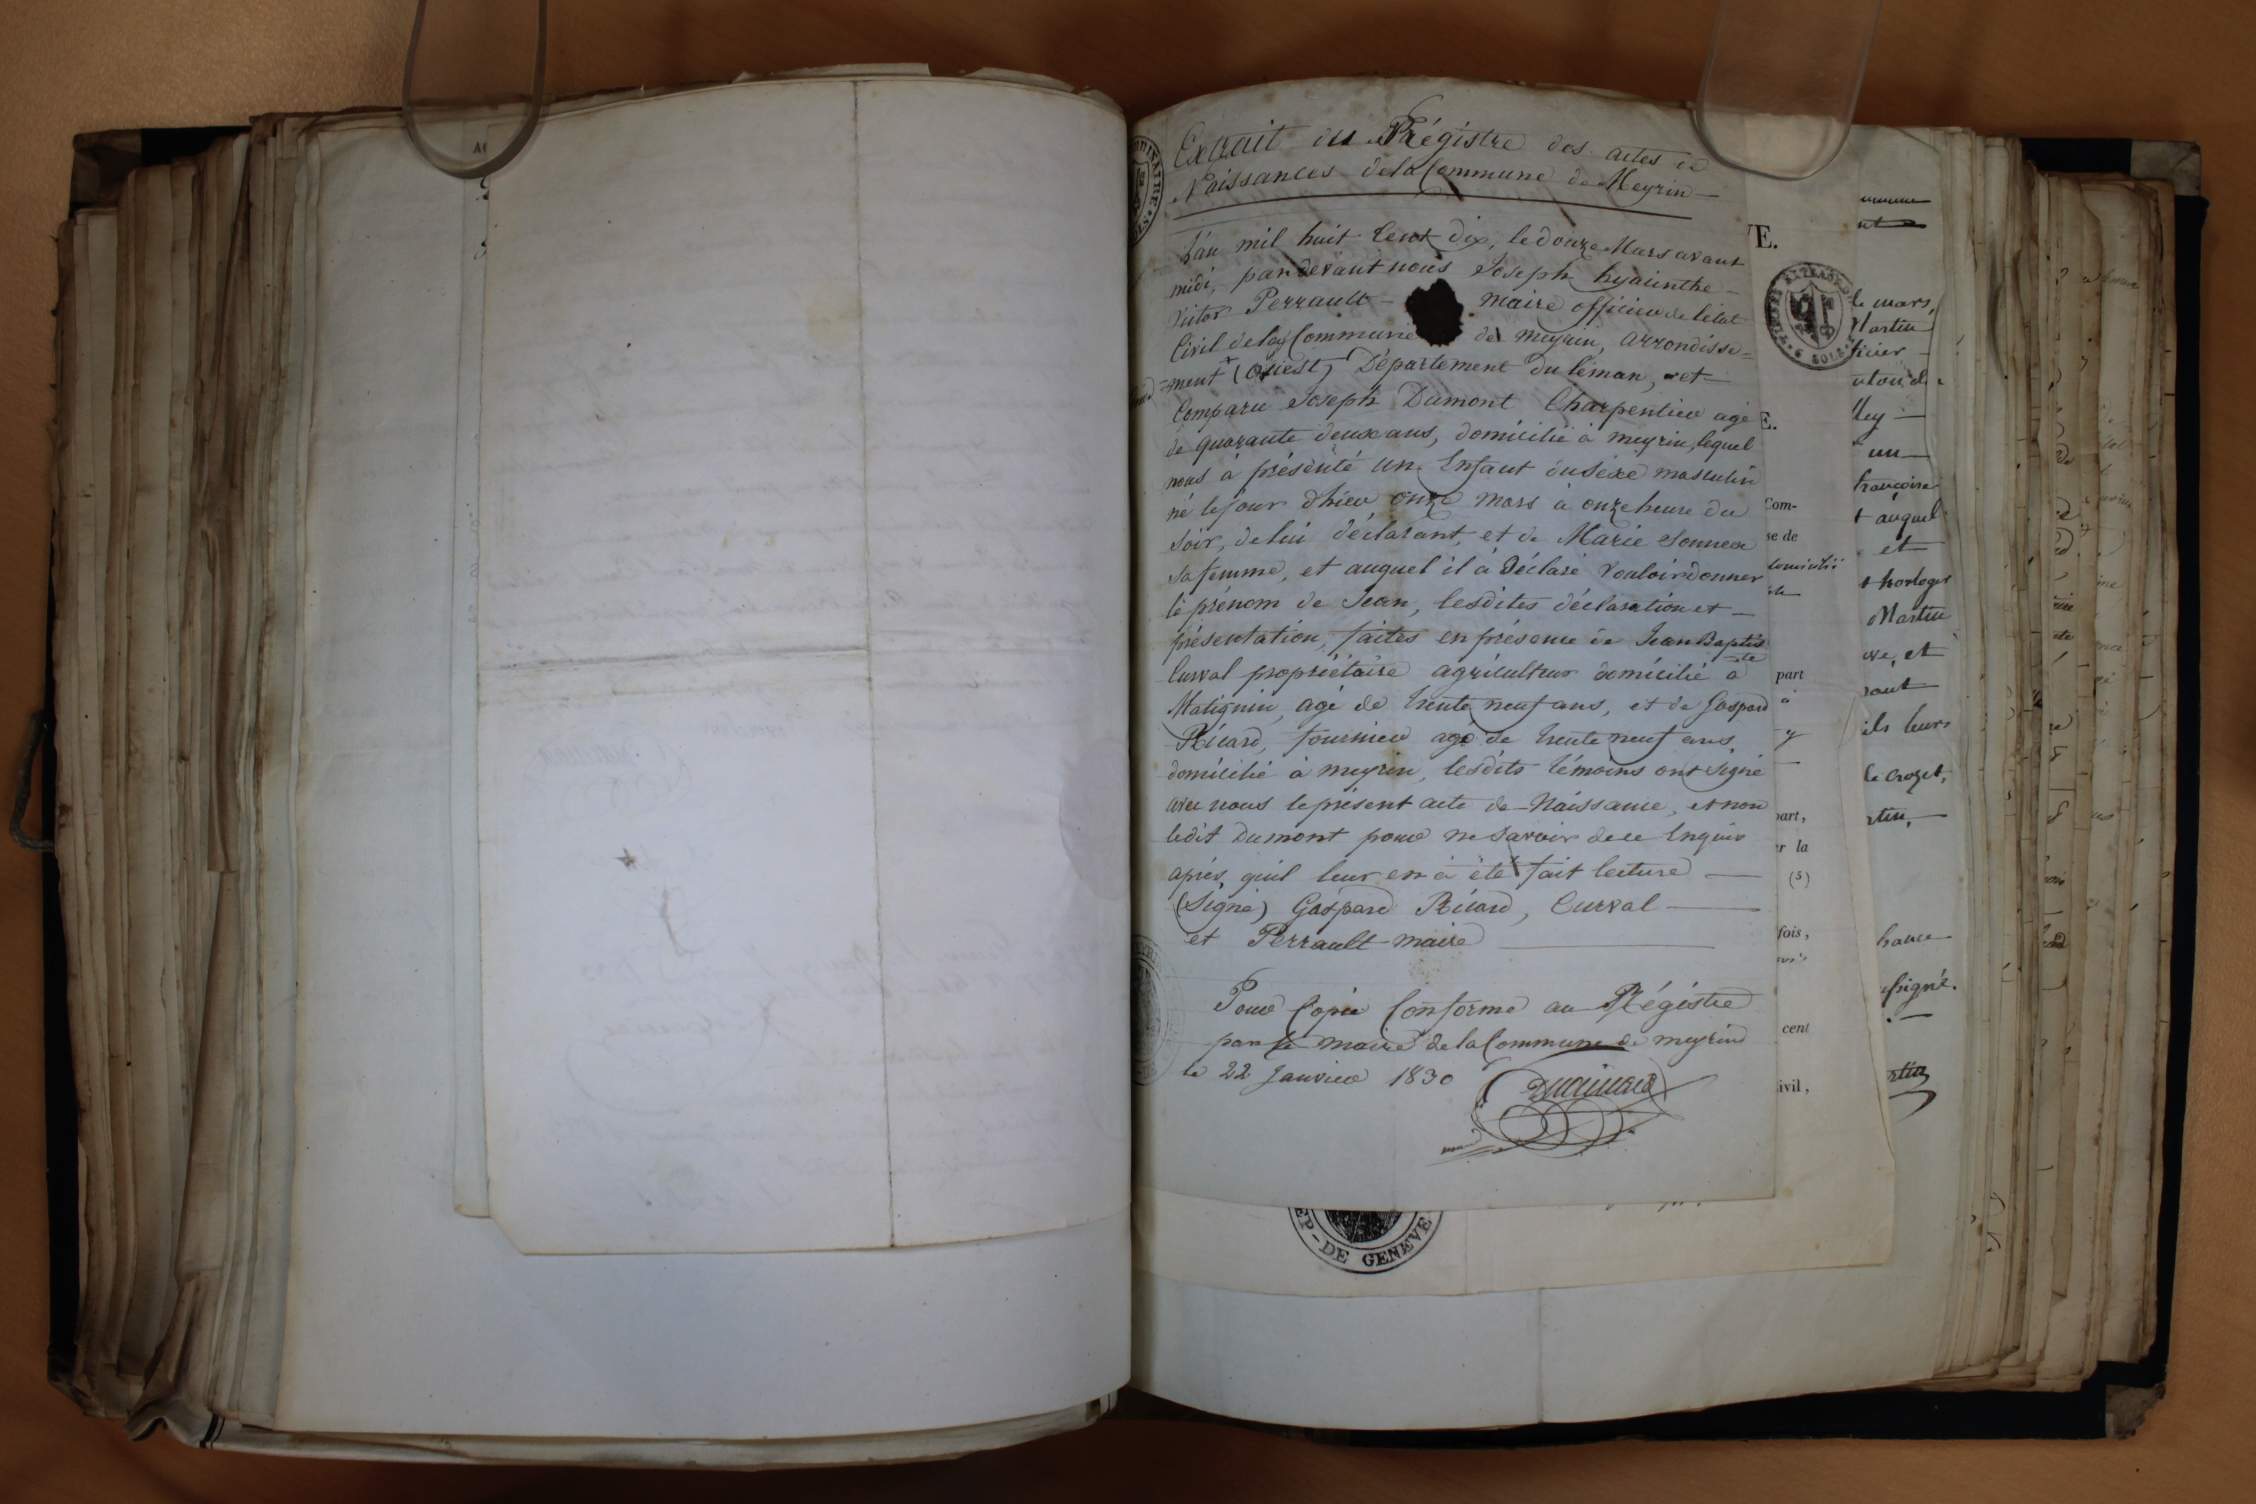 Extrait du Régistre des actes de
Naissances de la Commune de Meyrin
L'an mil huit Cent dix, le douze Mars avant
midi, par devant nous Joseph hyacinthe
Victor Perrault maire officier de l'état
Civil de la Commune de meyrin, arrondisse=
=ment (Ouest) Département du léman, est
Comparu Joseph Dumont Charpentier agé
de quarante deux ans, domicilié à meyrin, lequel
nous à présénté un Enfant du séxe masculin
né le jour d'hier onze mars à onze heure du
soir, de lui déclarant, et de Marie Sonnex
sa femme, et auquel il à Déclaré vouloir donner
le prénom de Jean, lesdites déclaration et
présentation, faites en présence de Jean Baptis
=te
Curval propriétaire agriculteur domicilié à
Matignin, agé de trente neuf ans, et de Gaspard
Ricard, fournier agé de trente neuf ans
domicilié à meyrin, lesdits témoins ont signé
avec nous le présent acte de Naissance, et non
ledit Dumont pour ne savoir de ce Enquis
après qu'il leur en à été fait lecture
(Signé) Gaspard Ricard, Curval
et Perrault maire
Pour Copie Conforme au Régistre
par le maire de la Commune de meyrin
le 22 Janvier 1830
VE.
E.
Com-
se de
domicilié
part
à
y
part,
r la
(5)
fois,
cent
ivil,
le mars,
Martin
ficier
un
françoise
t auquel
et
t horloger
Martin
et
ils leurs
le crozet,
rtin,
signé.
rtin
DE GENEVE